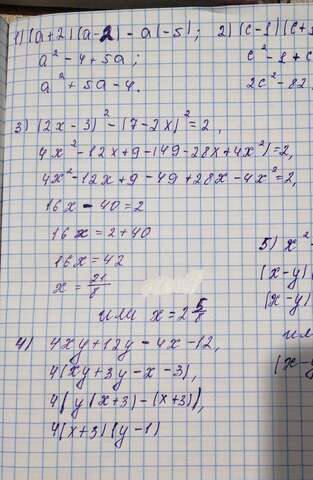 1) (a+2)(a-2) - a(-5); 2) (c-1)(c+
a² - 4 + 5a; c² - 1 + c
a² + 5a - 4. 2c² - 82
3) (2x - 3)² - (7 - 2x)² = 2,
4x² - 12x + 9 - (49 - 28x + 4x²) = 2,
4x² - 12x + 9 - 49 + 28x - 4x² = 2,
16x - 40 = 2
16x = 2 + 40
16x = 42
x = 21/8
или x = 2 5/8
5) x²
(x-y)
(x-y)
или
(x-y
4) 4xy + 12y - 4x - 12,
4(xy + 3y - x - 3),
4(y(x+3) - (x+3)),
4(x+3)(y-1)